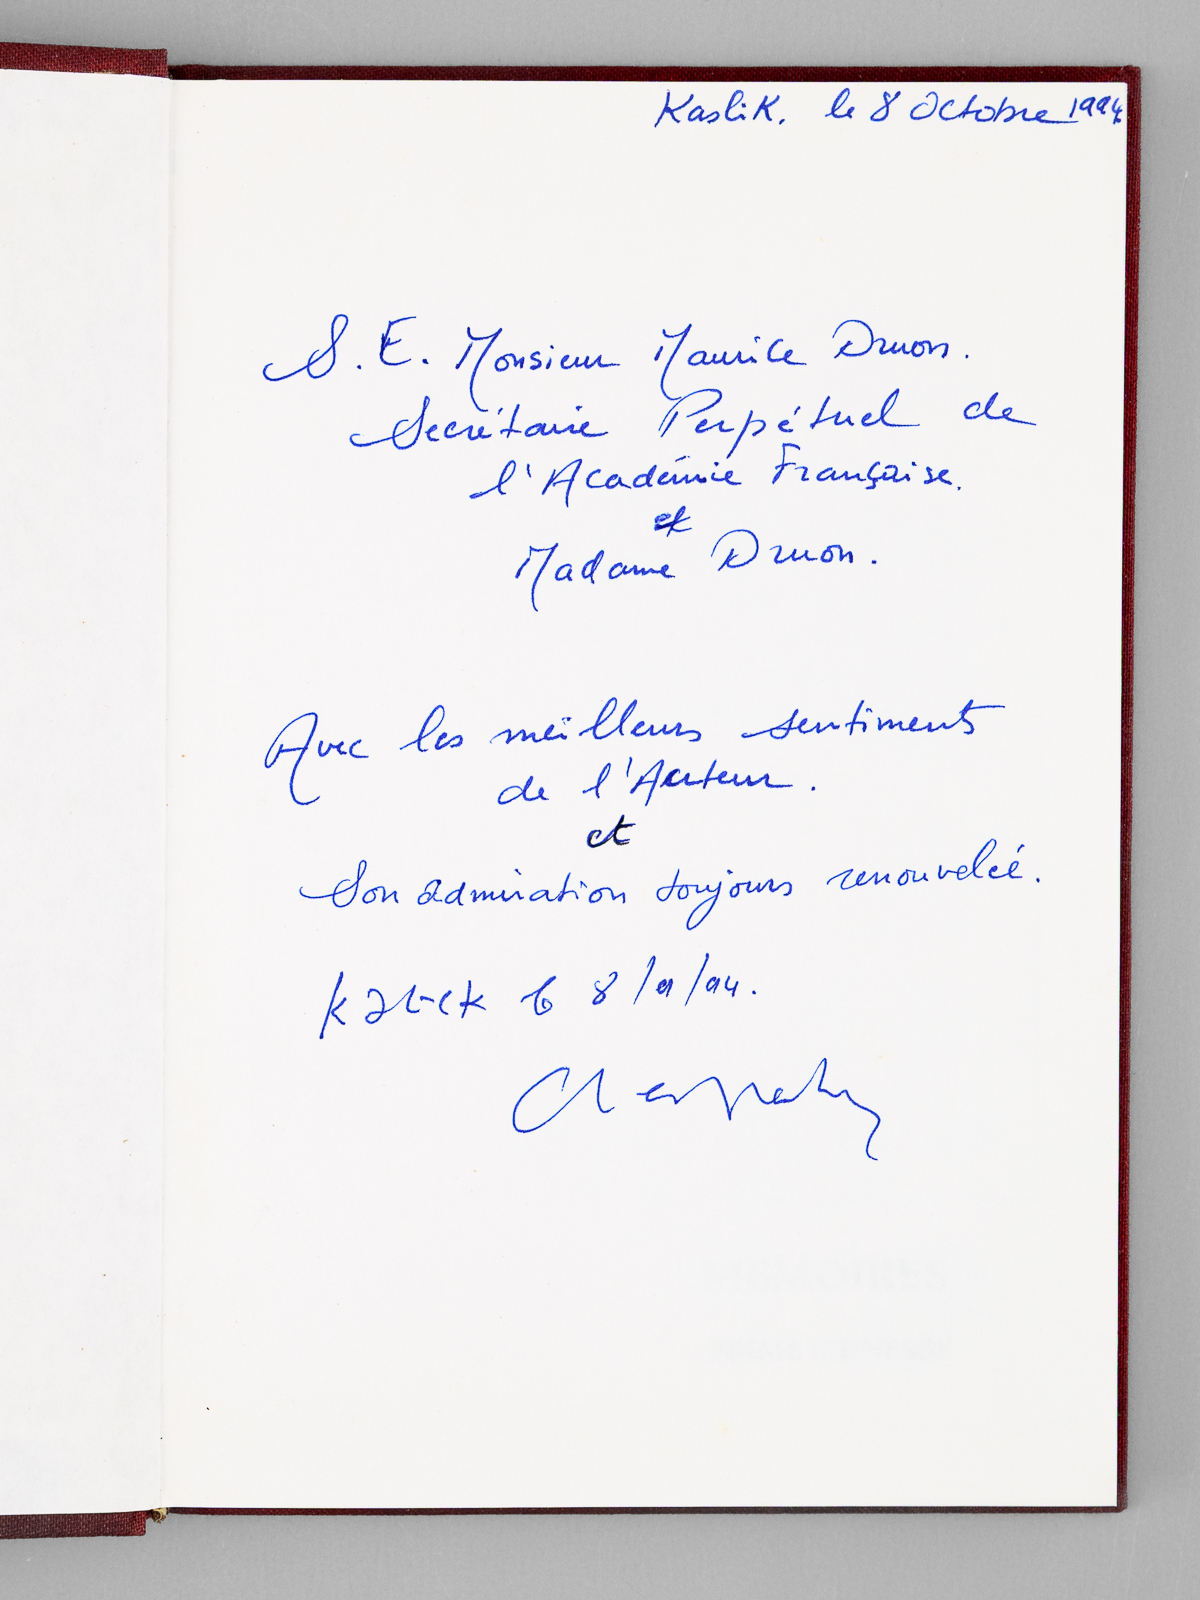 Kaslik. le 8 Octobre 1994
S.E. Monsieur Maurice Druon.
Secrétaire Perpétuel de
l'Académie Française.
et
Madame Druon.
Avec les meilleurs sentiments
de l'Auteur.
et
Son admiration toujours renouvelée.
Kaslik le 8
MEMOIRES